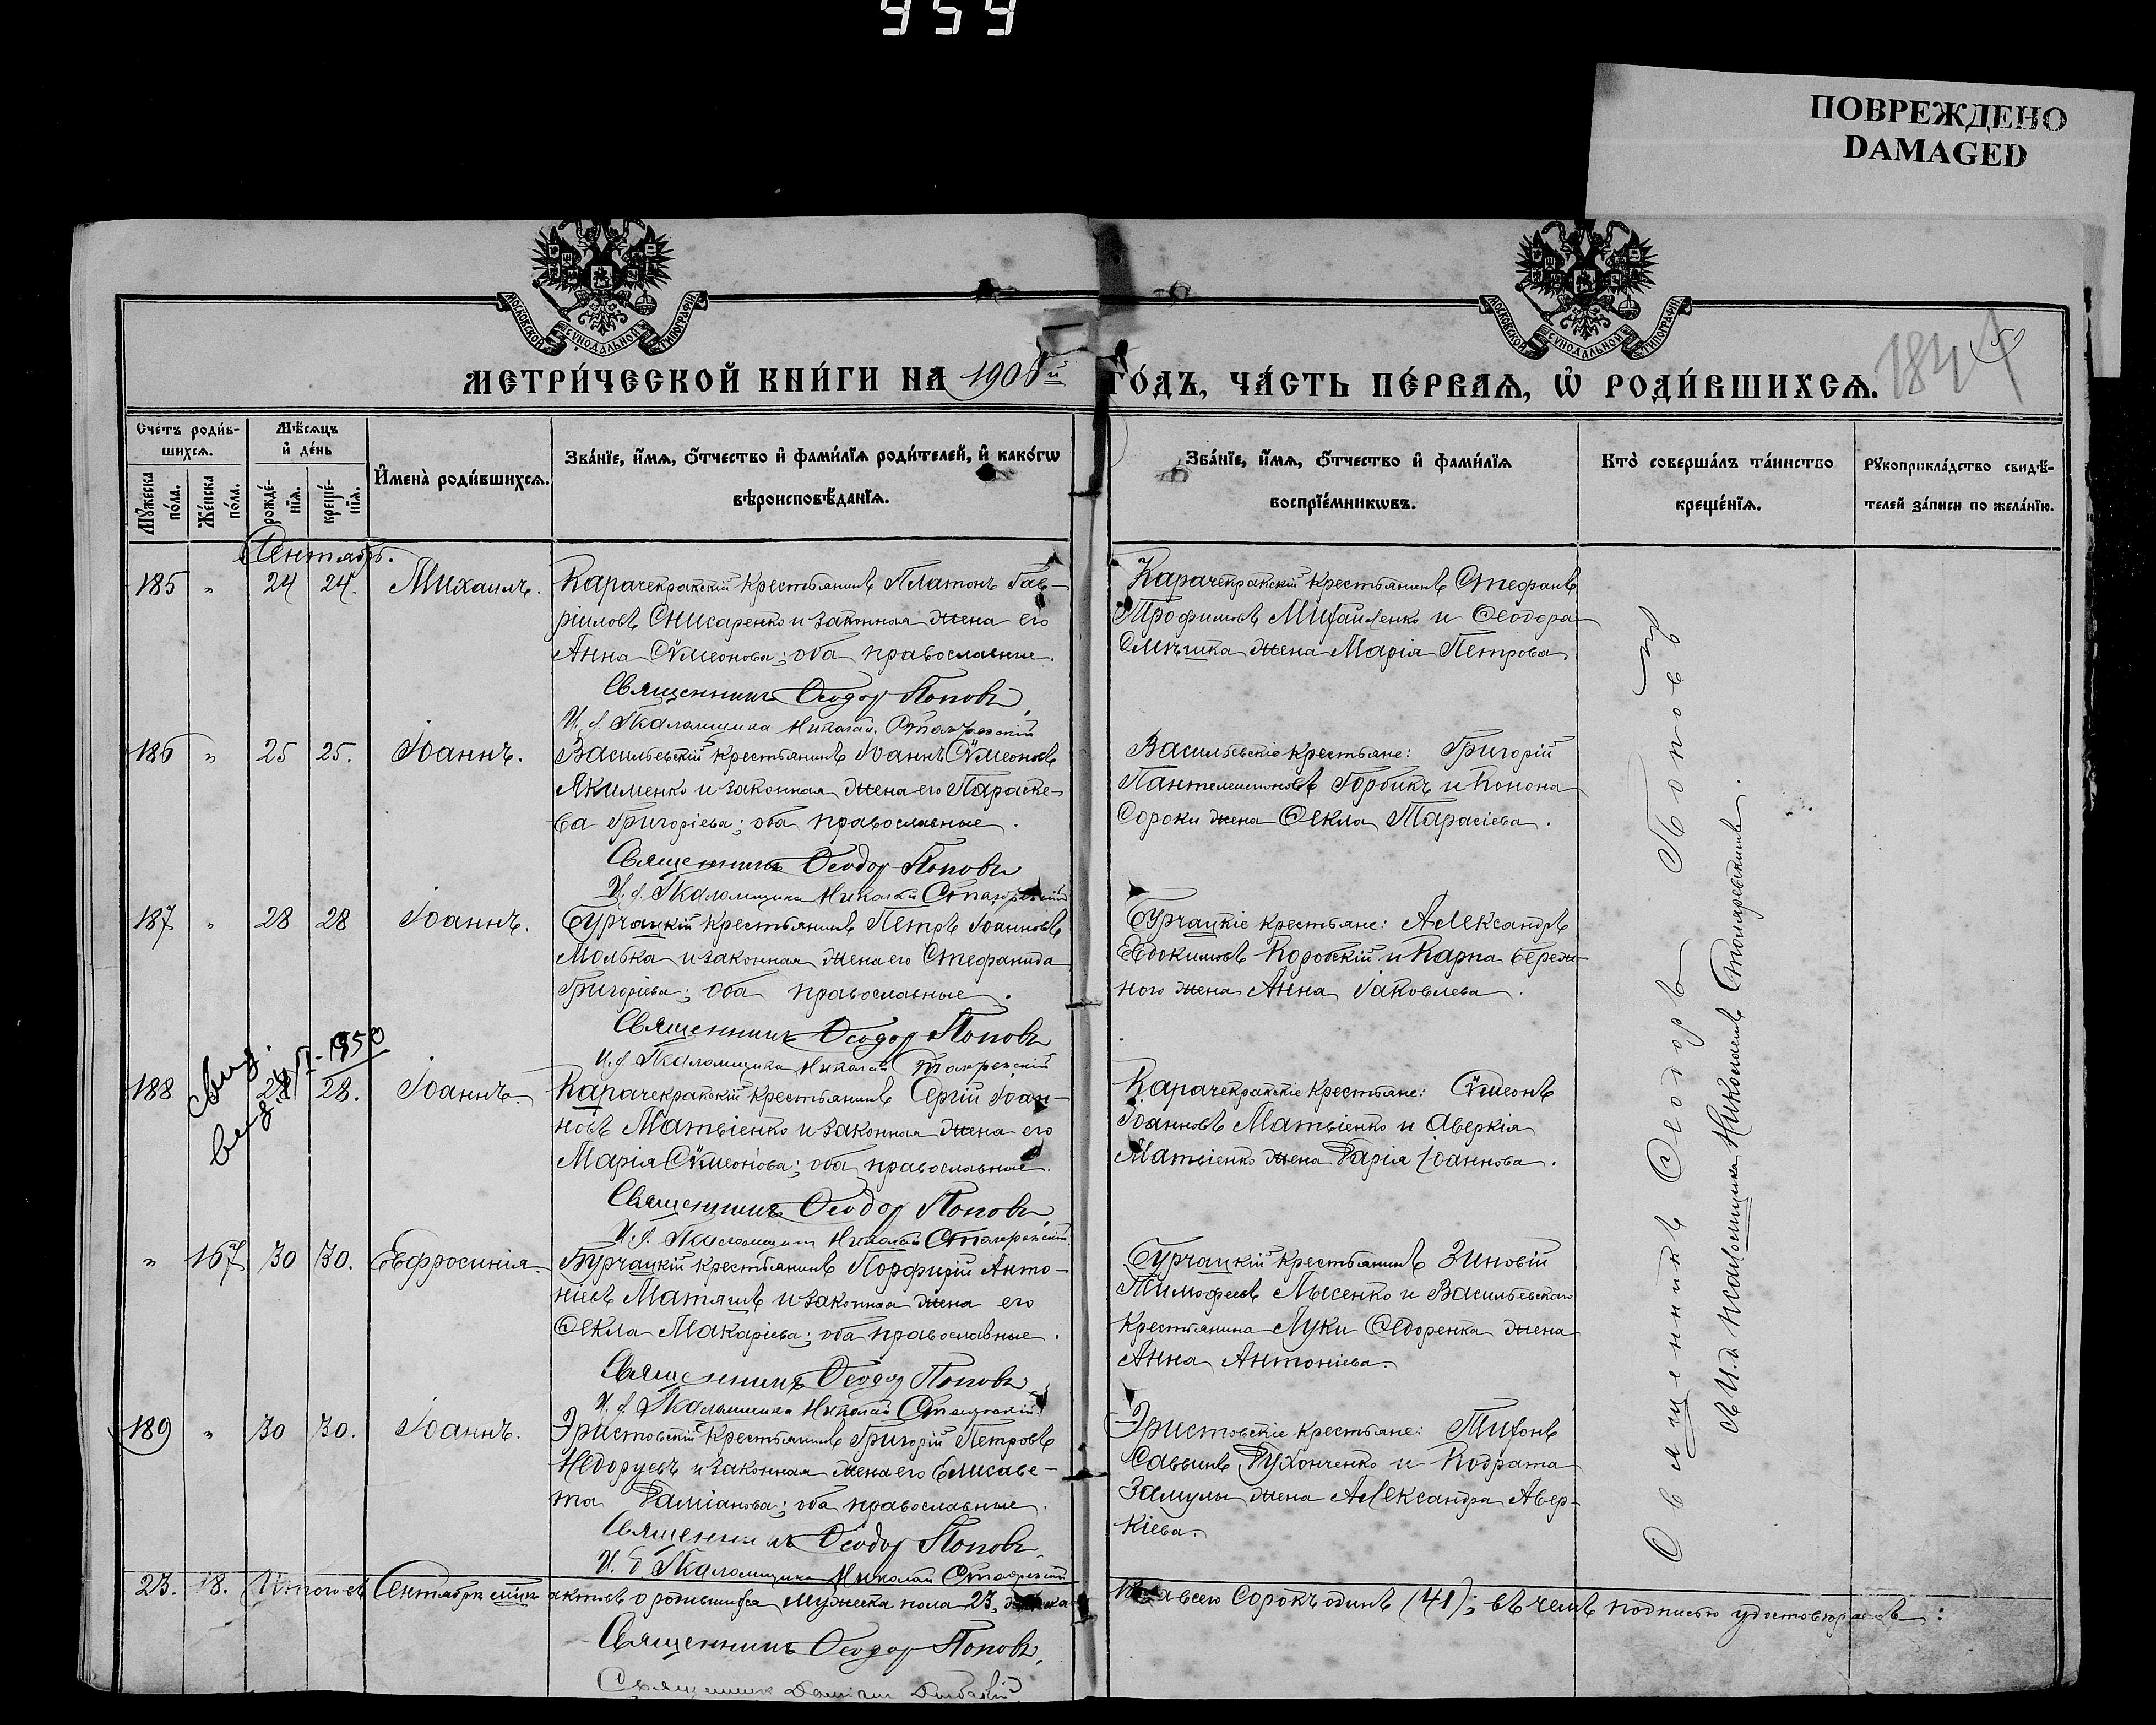 959
ПОВРЕЖДЕНО
DAMAGED
МОСКОВСКОЙ СѴНОДАЛЬНОЙ ТИПОГРАФІИ
МОСКОВСКОЙ СѴНОДАЛЬНОЙ ТИПОГРАФІИ
МЕТРИ́ЧЕСКОЙ КНИ́ГИ НА 1908й ГО́ДЪ, ЧА́СТЬ ПЕ́РВАѦ, Ѡ҆ РОДИ́ВШИХСѦ.
Сче́тъ роди́в-
шихсѧ.
Мѣ́сѧцъ
и҆ де́нь
Мꙋ́жеска
по́ла.
Же́нска
по́ла.
рожде́-
нїѧ.
креще́-
нїѧ.
И҆мена̀ роди́вшихсѧ.
Зва́нїе, и҆́мѧ, ѻ҆́тчество и҆ фами́лїѧ роди́телей, и҆ како́гѡ
вѣроисповѣ́данїѧ.
Зва́нїе, и҆́мѧ, ѻ҆́тчество и҆ фами́лїѧ
воспрїе́мникѡвъ.
Кто̀ соверша́лъ та́инство
креще́нїѧ.
Рꙋкоприкла́дство свидѣ́-
телей за́писи по жела́нїю.
Сентябрь.
185 „ 24 24. Михаилъ.
Карачекракскій крестьянинъ Платонъ Гав-
ріиловъ Снисаренко и законная жена его
Анна Сѵмеонова; оба православные.
Священникъ Ѳеодор Поповъ
И. д. Псаломщика Николай
Карачекракскій крестьянинъ Стефанъ
Трофимовъ Михайленко и Ѳеодора
жена Марія Петрова.
186 „ 25 25. Іоаннъ.
Васильевскій крестьянинъ Іоаннъ Сѵмеоновъ
Якименко и законная жена его Параске-
ва Григоріева; оба православные.
Священникъ Ѳеодор Поповъ
И. д. Псаломщика Николай
Васильевскіе крестьяне: Григорій
Пантелеимоновъ Горбикъ и Конона
Сороки жена Ѳекла Тарасіева.
187 „ 28 28 Іоаннъ.
Бурчацкій крестьянинъ Петръ Іоанновъ
Молька и законная жена его Стефанида
Григоріева; оба православные.
Священникъ Ѳеодор Поповъ
И. д. Псаломщика Николай
Бурчацкіе крестьяне: Александръ
Евдокимовъ Коробскій и Карпа Береж-
ного жена Анна Іаковлева.
1950
188 28 28. Іоаннъ.
Карачекракскій крестьянинъ Сергій Іоан-
новъ Матвіенко и законная жена его
Марія Сѵмеонова; оба православные.
Священникъ Ѳеодор Поповъ
И. д. Псаломщика Николай
Карачекракскіе крестьяне: Сѵмеонъ
Іоанновъ Матвіенко и Аверкія
Матвіенко жена Дарія Іоаннова.
„ 167 30 30. Евфросинія.
Бурчацкій крестьянинъ Порфирій Анто-
ніевъ Матяшъ и законная жена его
Ѳекла Макаріева; оба православные.
Священникъ Ѳеодор Поповъ
И. д. Псаломщика Николай
Бурчацкій крестьянинъ Зиновій
Тимофеевъ Лысенко и Васильевского
крестьянина Луки Ѳедоренка жена
Анна Антоніева.
189 „ 30 30. Іоаннъ.
Эристовскій крестьянинъ Григорій Петровъ
и законная жена его Елисаве-
та Даміанова; оба православные.
Священникъ Ѳеодор Поповъ
И. д. Псаломщика Николай
Эристовскіе крестьяне: Тихонъ
Саввинъ и Кодрата
Замулы жена Александра Авер-
кіева.
Священникъ Ѳеодоръ Поповъ
И. д. псаломщика Николай
23. 18. Итого въ Сентябрѣ актовъ о родившихся мужеска пола 23, а всего сорокъ одинъ (41); въ чемъ подписью удостовѣряемъ:
Священникъ Ѳеодор Поповъ.
Священникъ